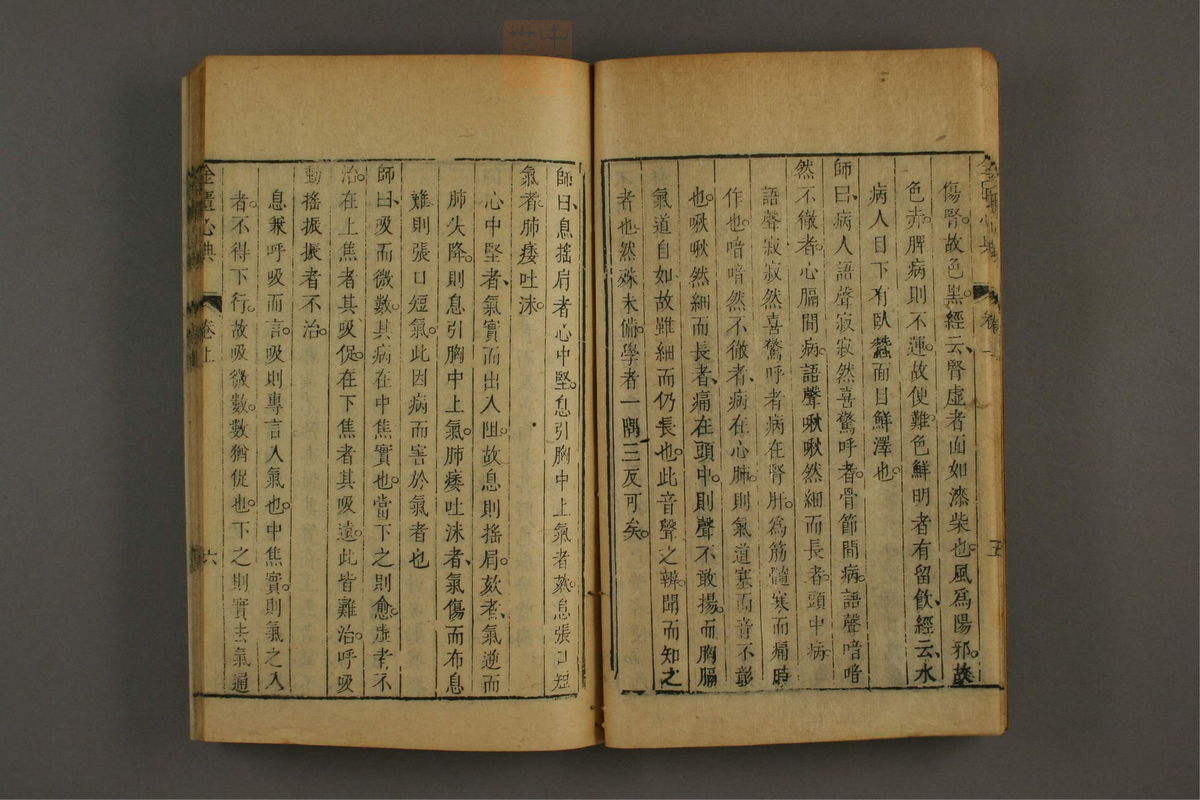 傷腎故色黑經云腎虛者面如漆柴也風為陽邪故
色赤脾病則不運故便難色鮮明者有留飲經云水
病人目下有臥蠶面目鮮澤也
師曰病人語聲寂寂然喜驚呼者骨節間病語聲喑喑
然不徹者心膈間病語聲啾啾然細而長者頭中病
語聲寂寂然喜驚呼者病在腎肝為筋髓寒而痛時
作也喑喑然不徹者病在心肺則氣道塞而音不彰
也啾啾然細而長者痛在頭中則聲不敢揚而胸膈
氣道自如故雖細而仍長也此音聲之辨聞而知之
者也然殊未備學者一隅三反可矣
師曰息搖肩者心中堅息引胸中上氣者欬息張口短
氣者肺痿吐沫
心中堅者氣實而出入阻故息則搖肩欬者氣逆而
肺失降則息引胸中上氣肺痿吐沫者氣傷而布息
難則張口短氣此因病而害於氣者也
師曰吸而微數其病在中焦實也當下之則愈虛者不
治在上焦者其吸促在下焦者其吸遠此皆難治呼吸
動搖振振者不治
息兼呼吸而言吸則專言入氣也中焦實則氣之入
者不得下行故吸微數數猶促也下之則實去氣通
金匱心典
卷上
六